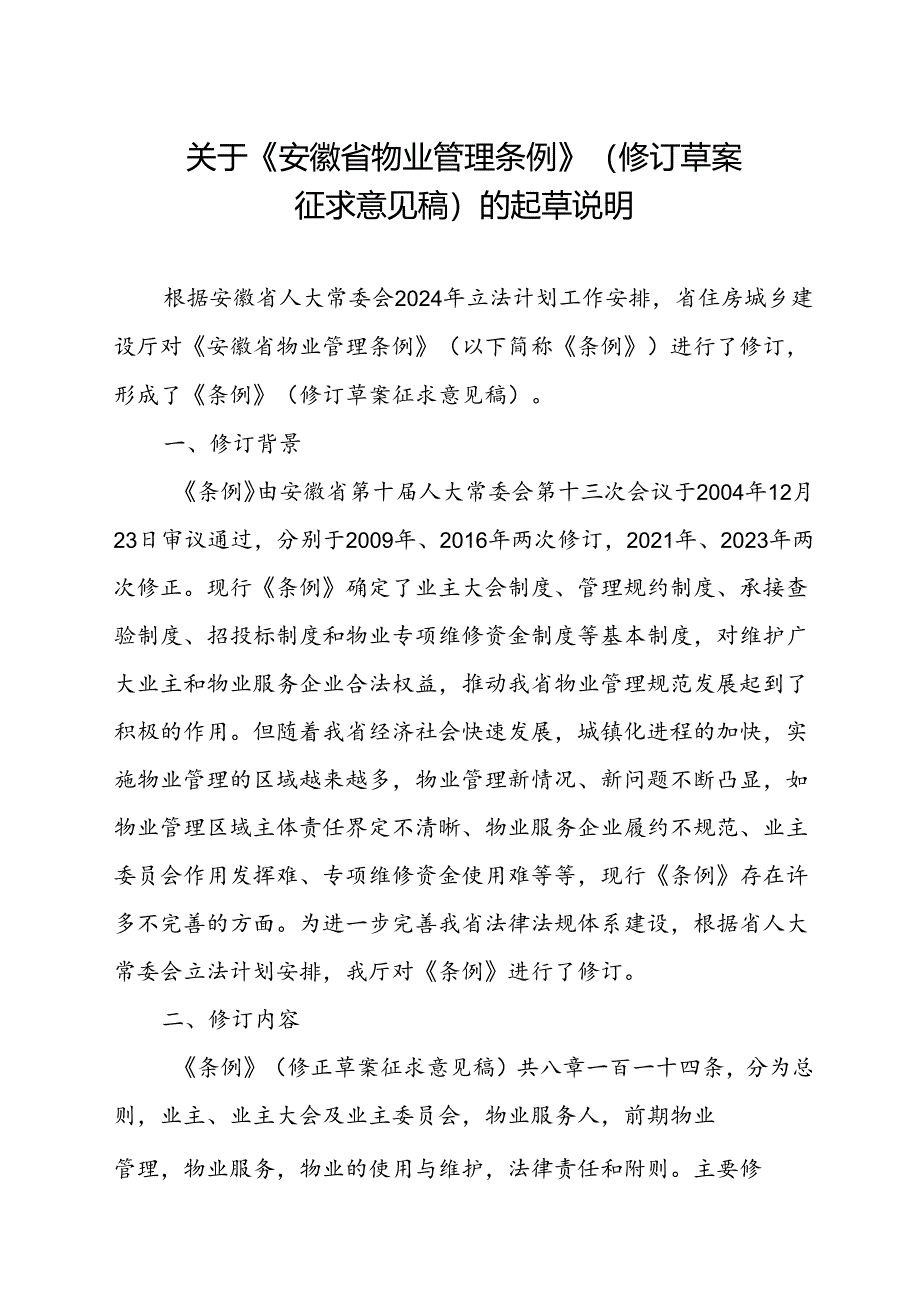 关于《安徽省物业管理条例》（修订草案
征求意见稿）的起草说明
根据安徽省人大常委会2024年立法计划工作安排，省住房城乡建
设厅对《安徽省物业管理条例》（以下简称《条例》）进行了修订，
形成了《条例》（修订草案征求意见稿）。
一、修订背景
《条例》由安徽省第十届人大常委会第十三次会议于2004年12月
23日审议通过，分别于2009年、2016年两次修订，2021年、2023年两
次修正。现行《条例》确定了业主大会制度、管理规约制度、承接查
验制度、招投标制度和物业专项维修资金制度等基本制度，对维护广
大业主和物业服务企业合法权益，推动我省物业管理规范发展起到了
积极的作用。但随着我省经济社会快速发展，城镇化进程的加快，实
施物业管理的区域越来越多，物业管理新情况、新问题不断凸显，如
物业管理区域主体责任界定不清晰、物业服务企业履约不规范、业主
委员会作用发挥难、专项维修资金使用难等等，现行《条例》存在许
多不完善的方面。为进一步完善我省法律法规体系建设，根据省人大
常委会立法计划安排，我厅对《条例》进行了修订。
二、修订内容
《条例》（修正草案征求意见稿）共八章一百一十四条，分为总
则，业主、业主大会及业主委员会，物业服务人，前期物业
管理，物业服务，物业的使用与维护，法律责任和附则。主要修